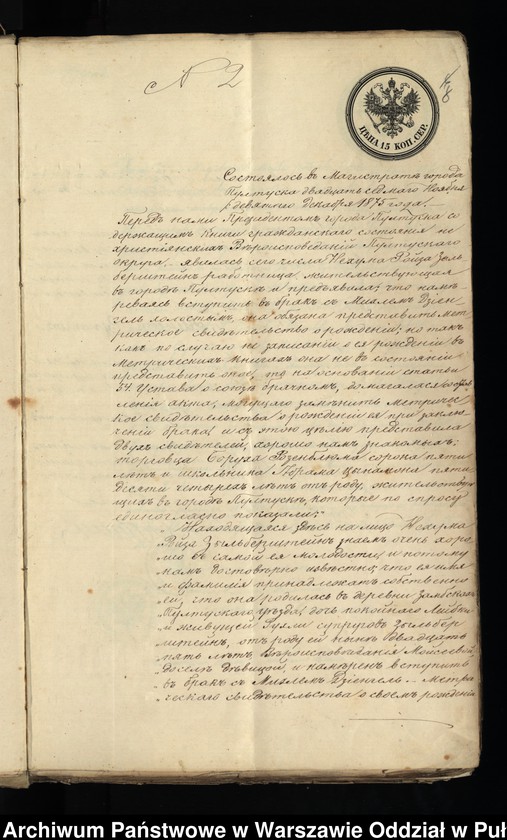 N 2
ЦѢНА 15 КОП. СЕР.
Состоялось въ Магистратѣ города
Пултуска двадцать седьмаго Ноября
девятаго Декабря 1875 года.
Передъ нами Президентомъ города Пултуска со
держащимъ Книги гражданскаго состоянія не
христіянскихъ Вѣроисповѣданій Пултускаго
округа, явилась сего числа Нехума Ройза Зыль
берштейнъ работница, жительствующая
въ городѣ Пултускѣ и предъявила; что намѣ
реваясь вступить въ бракъ съ Миялемъ Дзѣн
гель холостымъ, она обязана представить мет
рическое свидѣтельство о рожденіи; но такъ
какъ по случаю не записанія о ея рожденіи въ
Метрическихъ Книгахъ она не въ состояніи
представить онаго, то на основаніи статьи
54 Устава о союзѣ брачномъ, домагалась состав
ленія акта, могущаго замѣнить метричес
кое свидѣтельство о рожденіи ея при заклю
ченіи брака; и съ этою цѣлью представила
двухъ свидѣтелей, хорошо намъ знакомыхъ:
торговца Боруха сорока пяти
лѣтъ и школьника пяти
десяти четырехъ лѣтъ отъ роду, жительствую
щихъ въ городѣ Пултускѣ, которые по спросу
единогласно показали:
Находящаяся здѣсь на лицо Нехума
Ройза Зыльберштейнъ знаемъ очень хоро
шо съ самой ея молодости, и потому
намъ достовѣрно извѣстно, что ея имя
и фамилія принадлежатъ собственно
ей, что она родилась въ деревни
Пултускаго уѣзда, дочь покойнаго
и живущей супруговъ Зыльбер
штейнъ, отъ роду ей нынѣ двадцать
пять лѣтъ Вѣроисповѣданія Моисеева,
доселѣ дѣвицой, и намѣренъ вступить
въ бракъ съ Миялемъ Дзѣнгель. Метри
ческаго свидѣтельства о своемъ рожденіи
Archiwum Państwowe w Warszawie Oddział w Puł